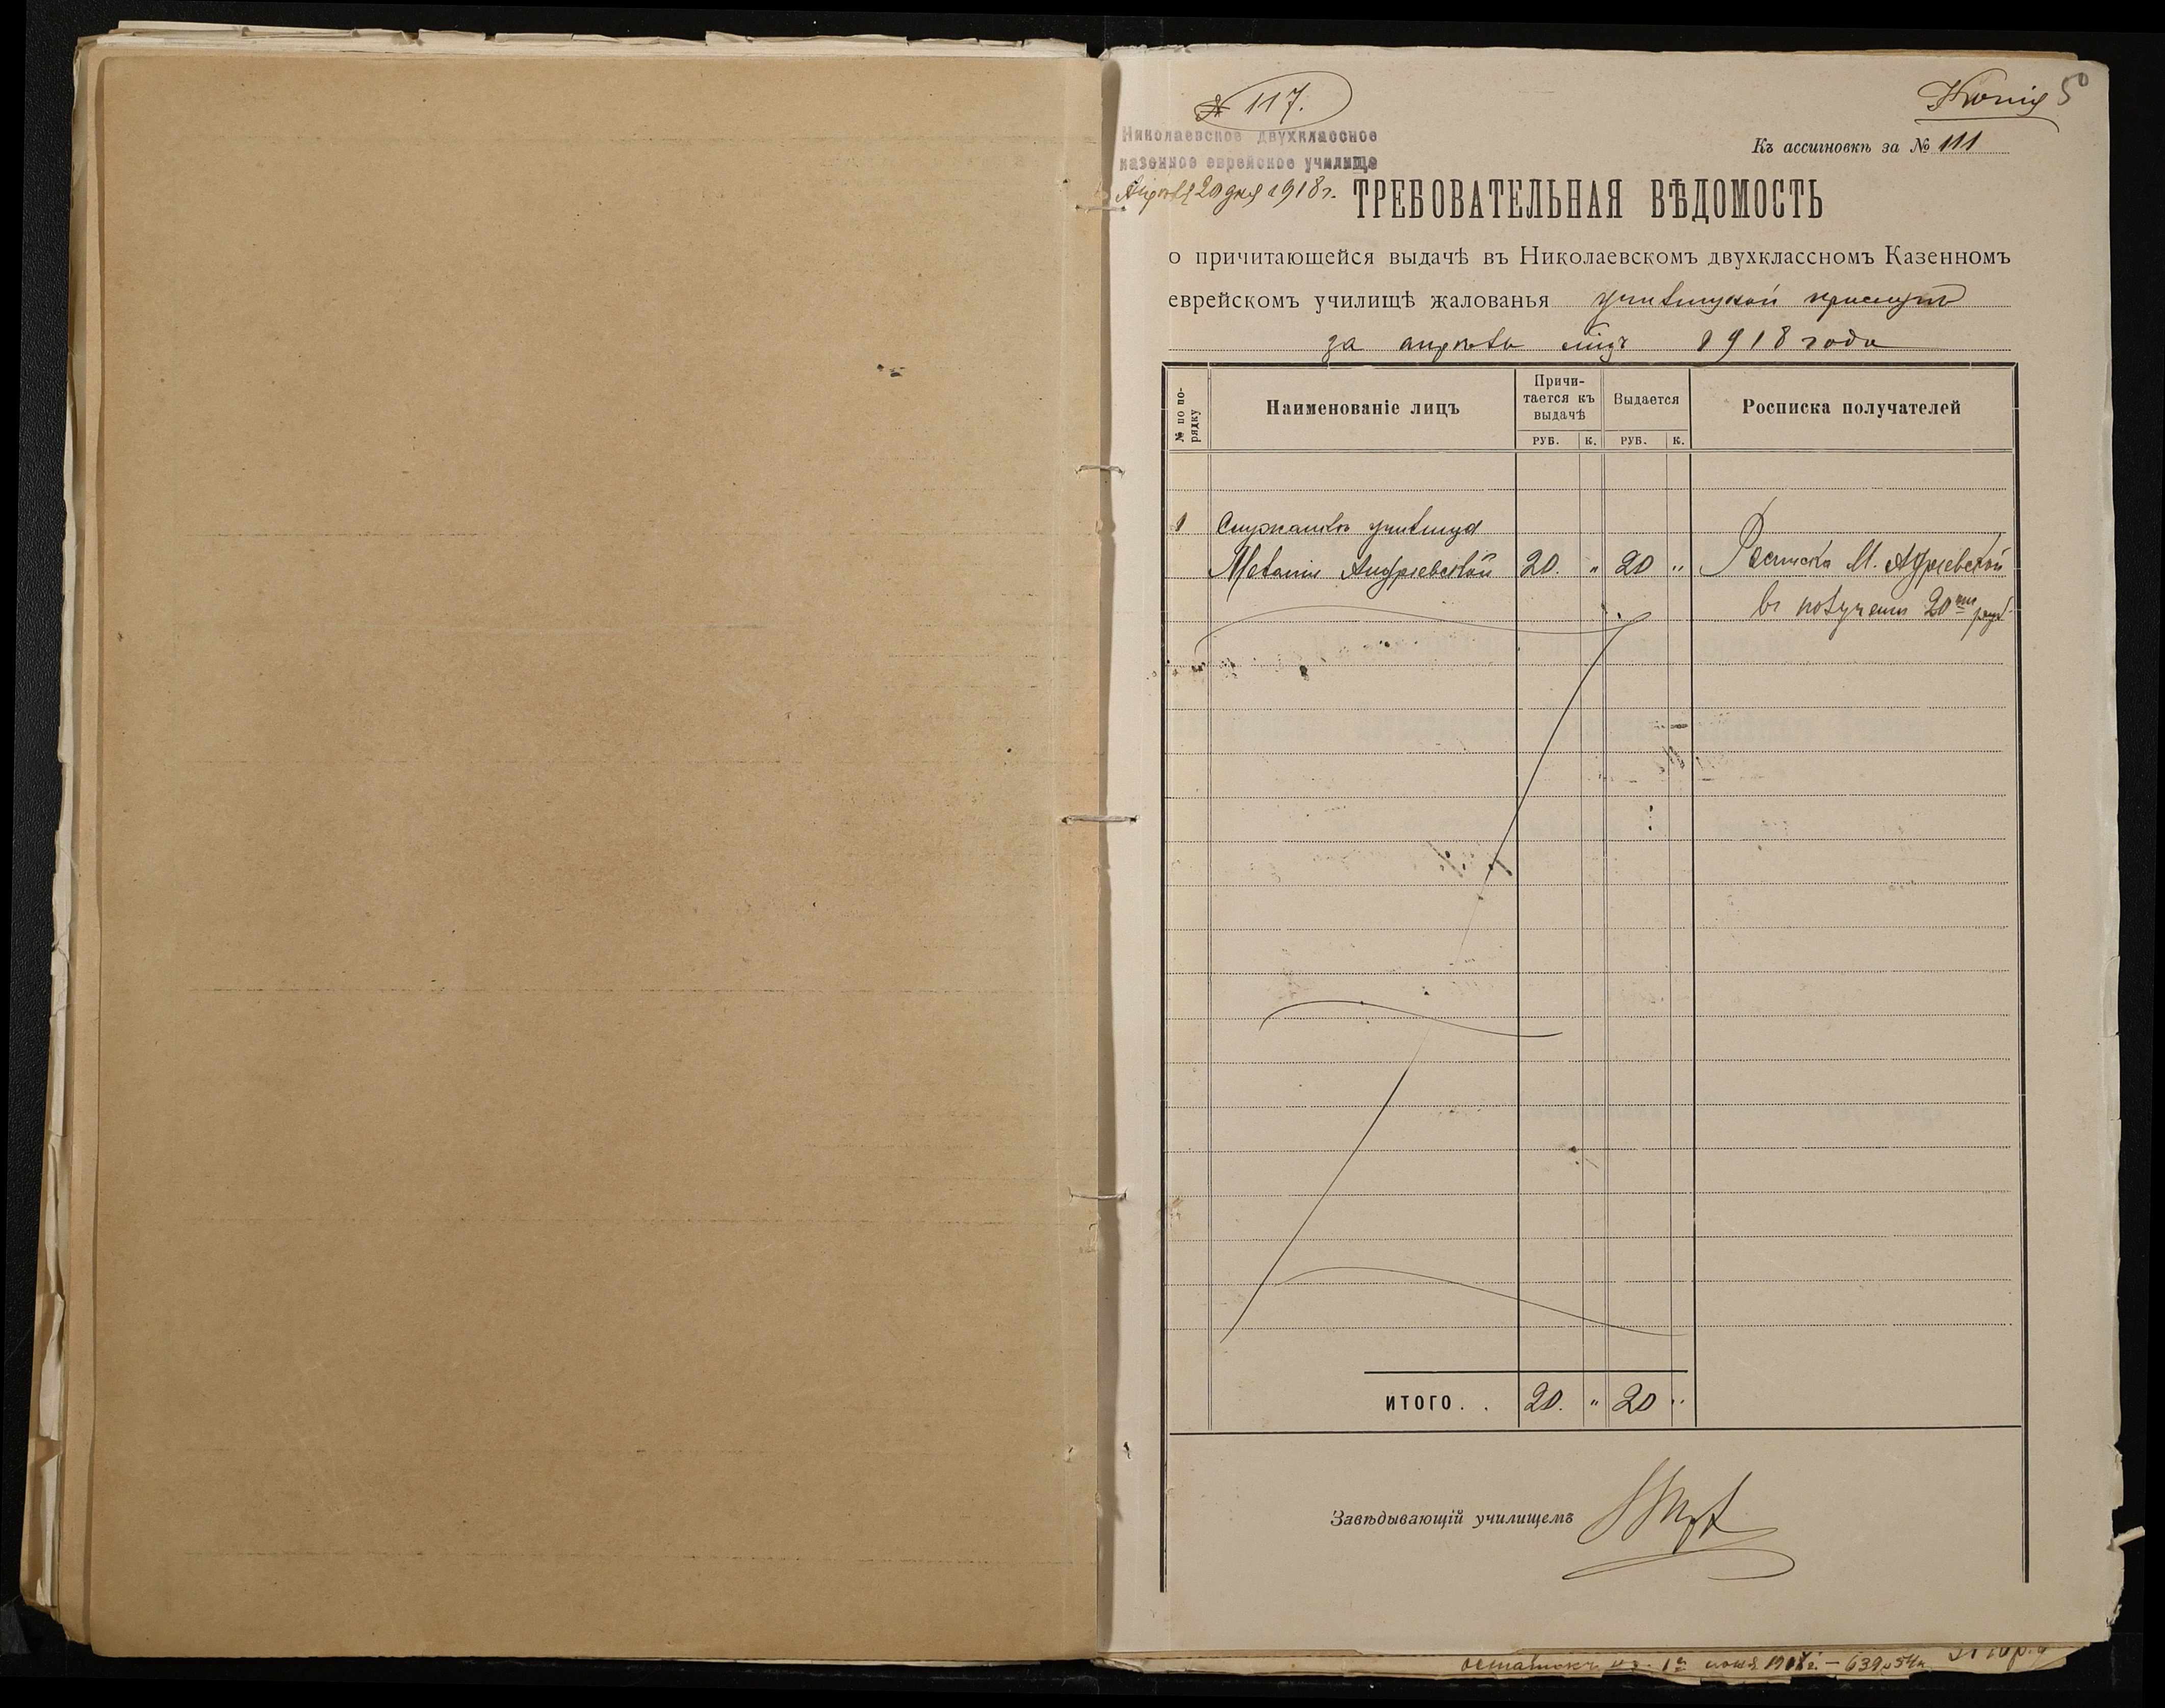 № 117.
Копія
50
Николаевское двухклассное
казенное еврейское училище
Апрѣля 20 дня 1918 г.
Къ ассигновкѣ за № 111
ТРЕБОВАТЕЛЬНАЯ ВѢДОМОСТЬ
о причитающейся выдачѣ въ Николаевскомъ двухклассномъ Казенномъ
еврейскомъ училищѣ жалованья училищной прислугѣ
за апрѣль мцъ 1918 года
№ по по-
рядку
Наименованіе лицъ
Причи-
тается къ
выдачѣ
Выдается
Росписка получателей
РУБ. К. РУБ. К.
1 Служанкѣ училища
Меланіи Андріевской 20. " 20 " Росписка М. Андріевской
въ полученіи 20ти руб.
ИТОГО. . 20. " 20 "
Завѣдывающій училищемъ
остатокъ на 1е 639 р 54 к